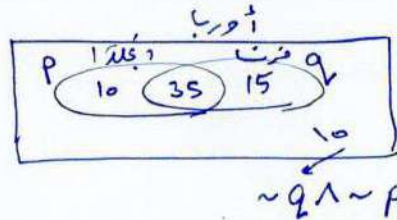 أوربا
p انجلترا فرنسا q
10 35 15
١٠
~q ∧ ~p